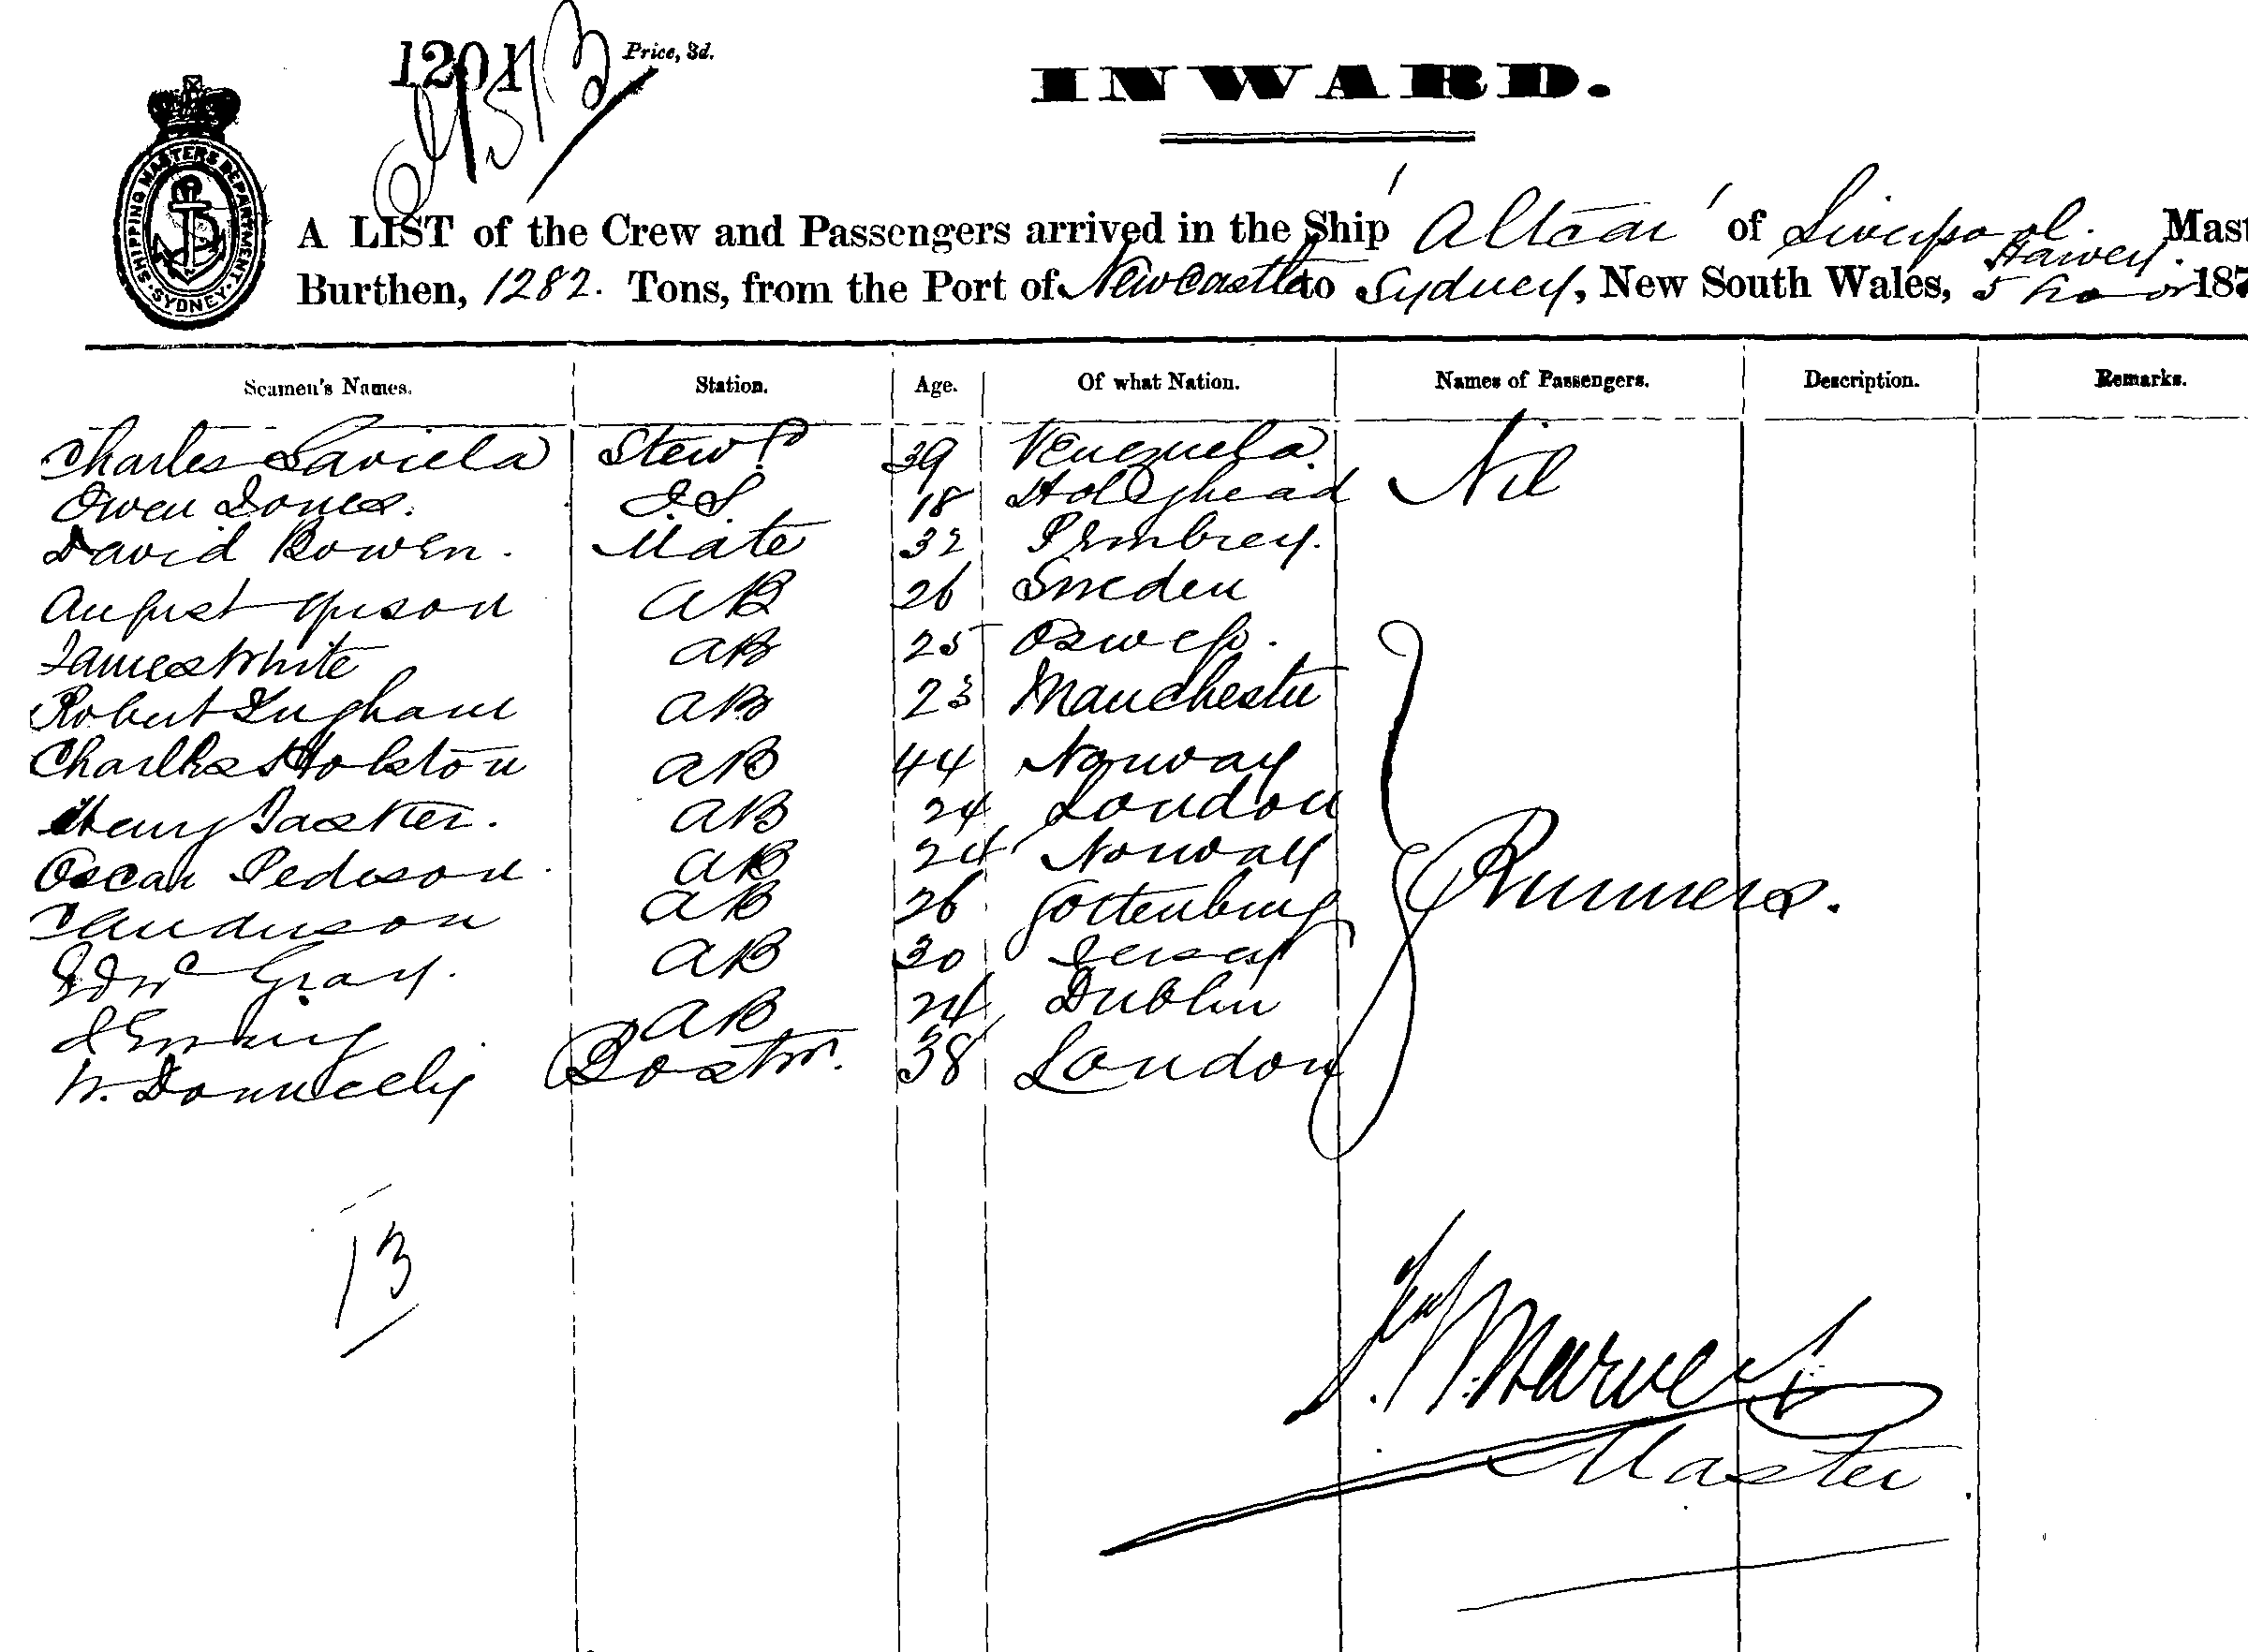 1201 Price, 3d.
INWARD.
SHIPPING MASTER'S DEPARTMENT SYDNEY
A LIST of the Crew and Passengers arrived in the Ship 'Altcar' of Liverpool. Mast
Harvey.
Burthen, 1282. Tons, from the Port of Newcastle to Sydney, New South Wales, 5 187
Seamen's Names. Station. Age. Of what Nation. Names of Passengers. Description. Remarks.
Charles Laviela Stewd 39 Venezuela. Nil
Owen Jones. OS 18 Holyhead
David Bowen. Mate 32 Pembrey.
August 26 AB Sweden
James White AB 25 Oswego.
Robert Ingham AB 23 Manchester
Charles Holston AB 44 Norway
Henry Tasker. AB 24 London
Oscar Pederson. AB 24 Norway
C Anderson AB 26 Gottenburg
Edwd Gray. AB 30 Jersey
AB 24 Dublin
W. Donnelly Boatsn. 38 London
Runners.
13
Harvey
Master